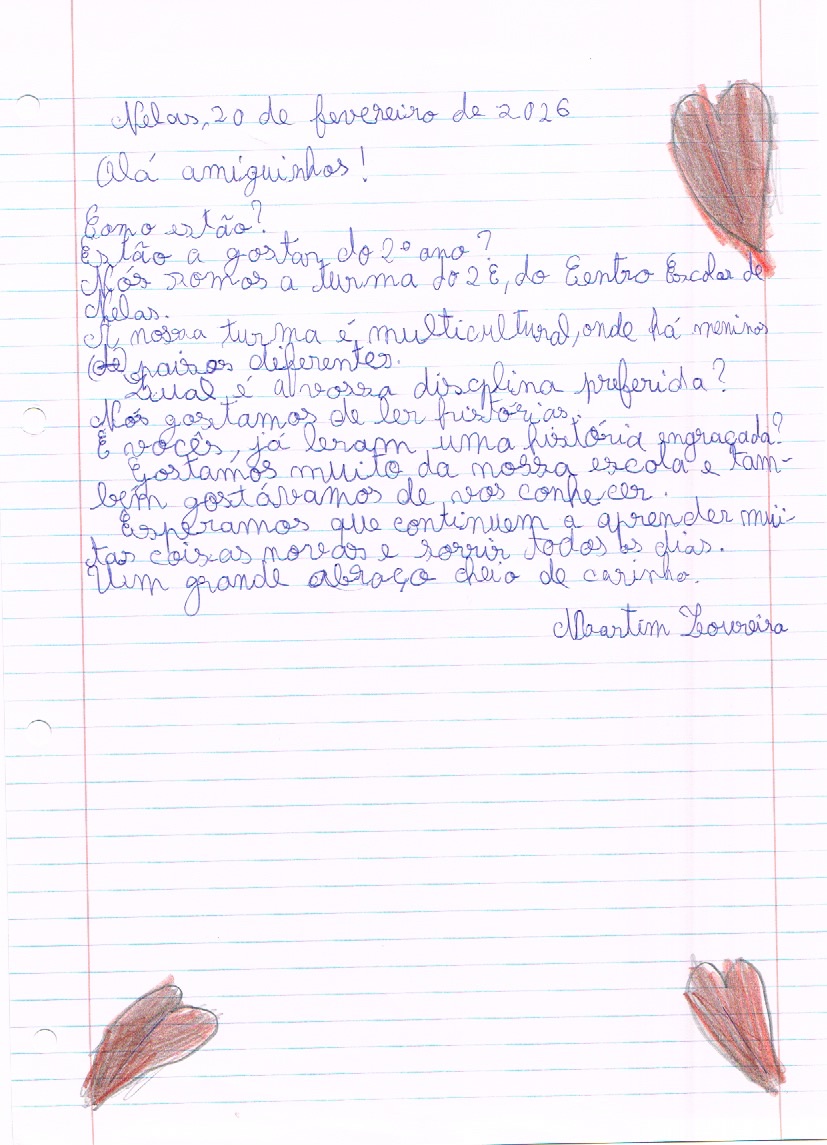 Nelas, 20 de fevereiro de 2026
Olá amiguinhos!
Como estão?
Estão a gostar do 2º ano?
Nós somos a turma do 2E, do Centro Escolar de
Nelas.
A nossa turma é multicultural, onde há meninos
(de) países diferentes.
Qual é a vossa disciplina preferida?
Nós gostamos de ler histórias.
E vocês, já leram uma história engraçada?
Gostamos muito da nossa escola e tam-
bém gostávamos de vos conhecer.
Esperamos que continuem a aprender mui-
tas coisas novas e sorrir todos os dias.
Um grande abraço cheio de carinho.
Martim Loureiro